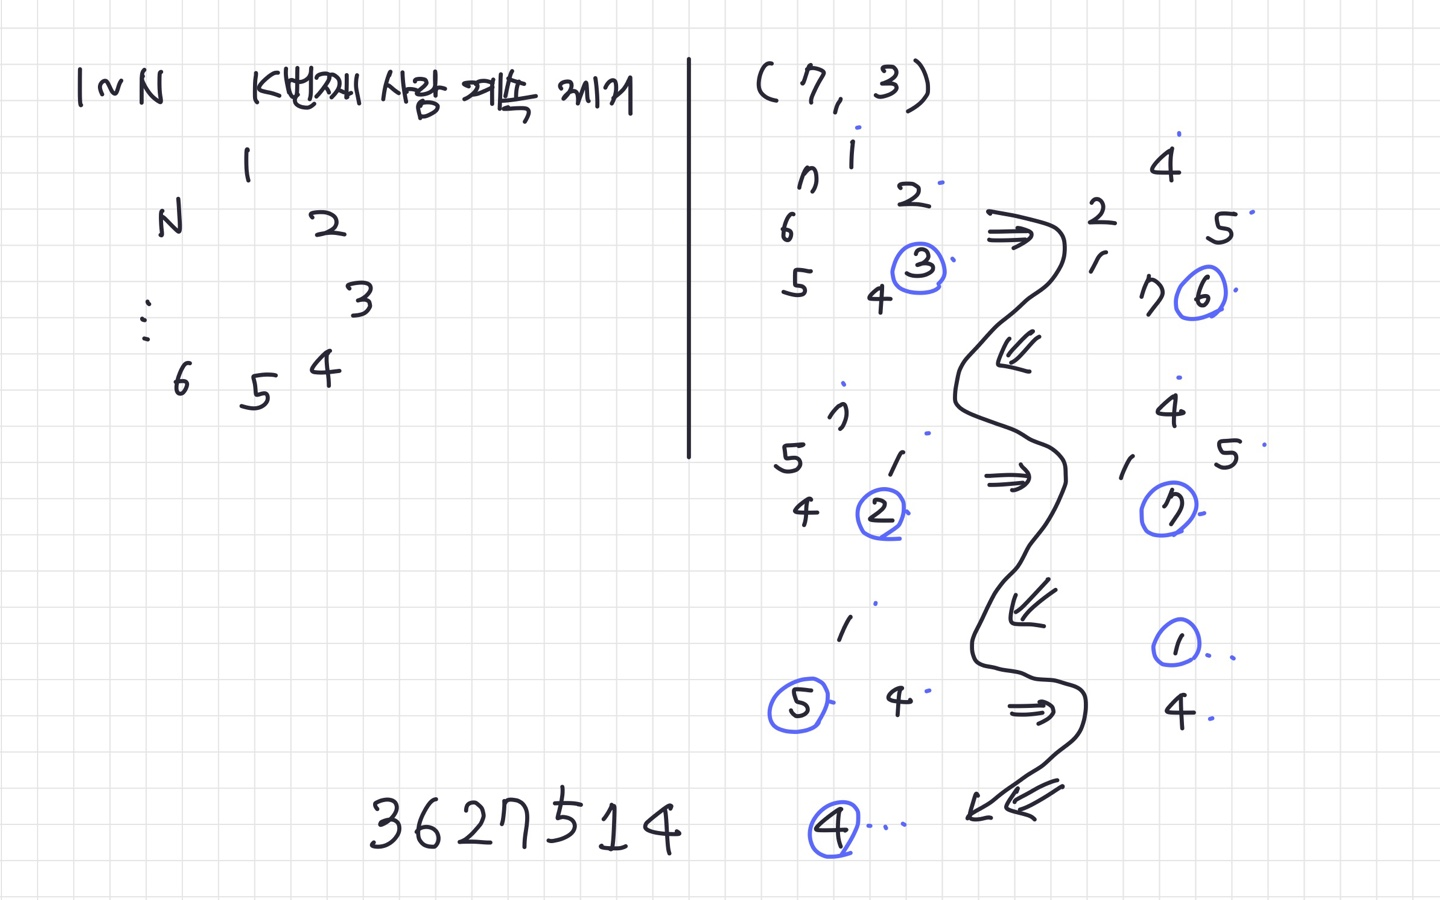 1~N K번째 사람 계속 제거
1
N 2
⋮ 3
6 5 4
(7, 3)
1
7 2
6 3
5 4
⇒
4
2 5
1 6
7
⇐
7
5 1
4 2
⇒
4
1 5
7
⇐
1
5 4
⇒
1
4
⇐
4
3 6 2 7 5 1 4